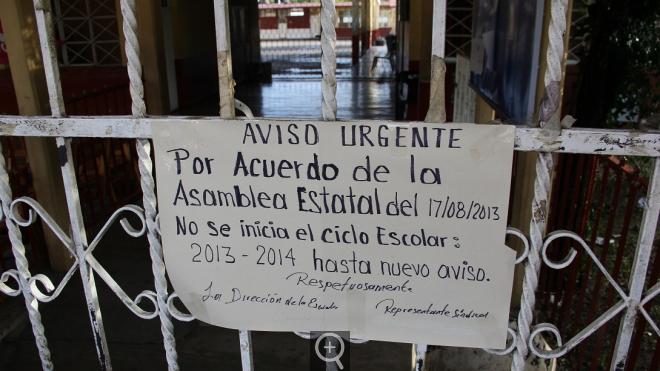 AVISO URGENTE
Por Acuerdo de la
Asamblea Estatal del 17/08/2013
No se inicia el ciclo Escolar:
2013-2014 hasta nuevo aviso.
Respetuosamente
La Dirección de la Escuela
Representante Sindical